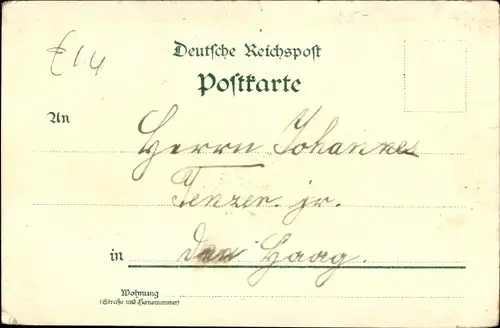 £14
Deutsche Reichspost
Postkarte
An
Herrn Johannes
Tenzen. jr.
in Den Haag.
Wohnung
(Straße und Hausnummer)